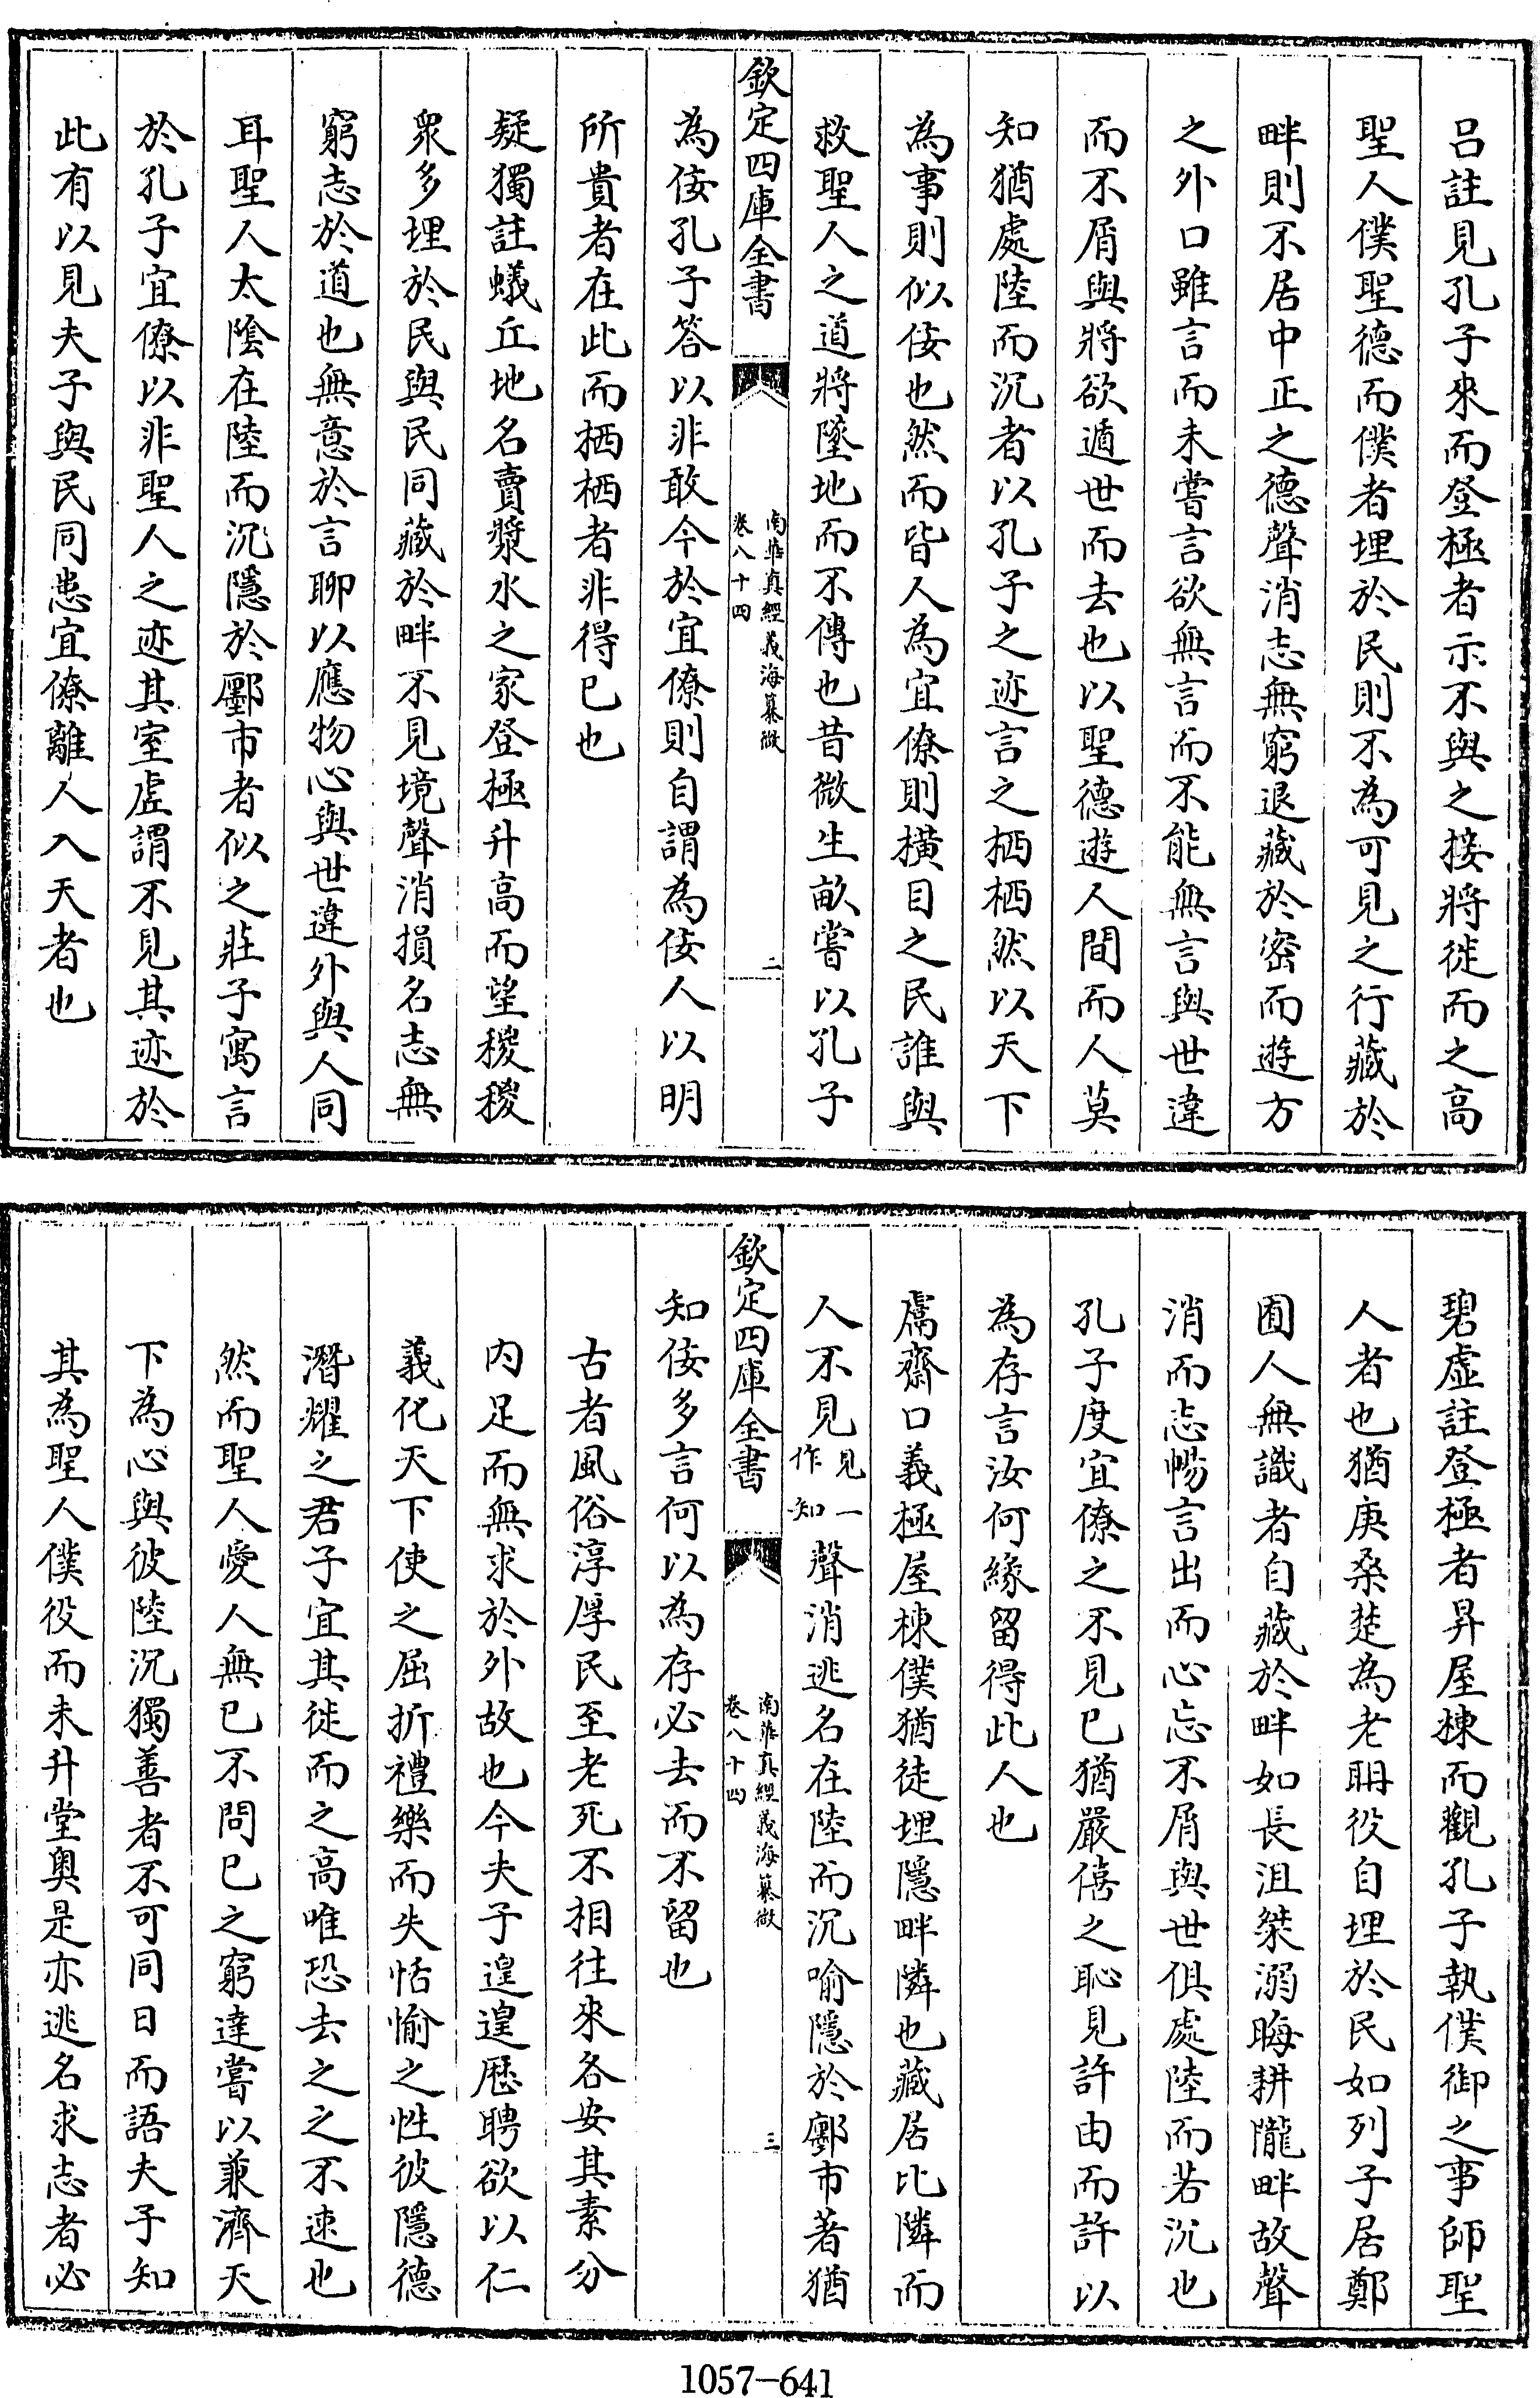 吕註見孔子來而登極者示不與之接將徙而之高
聖人僕聖德而僕者埋於民則不為可見之行藏於
畔則不居中正之德聲消志無窮退藏於密而遊方
之外口雖言而未嘗言言欲無言而不能無言與世違
而不屑與將欲遁世而去也以聖德遊人間而人莫
知猶處陸而沉者以孔子之迹言之栖栖然以天下
為事則似佞也然而皆人為宜僚則橫目之民誰與
救聖人之道將墜地而不傳也昔微生畝嘗以孔子
欽定四庫全書
南華真經義海纂微
卷八十四
二
為佞孔子答以非敢今於宜僚則自謂為佞人以明
所貴者在此而栖栖者非得已也
疑獨註蟻丘地名賣漿水之家登極升高而望稷稷
衆多埋於民與民同藏於畔不見境聲消損名志無
窮志於道也無意於言聊以應物心與世違外與人同
耳聖人太陰在陸而沉隱於鄽市者似之莊子寓言
於孔子宜僚以非聖人之迹其室虛謂不見其迹於
此有以見夫子與民同患宜僚離人入天者也
碧虛註登極者昇屋棟而觀孔子執僕御之事師聖
人者也猶庚桑楚為老聃役自埋於民如列子居鄭
圃人無識者自藏於畔如長沮桀溺晦耕隴畔故聲
消而志暢言出而心忘不屑與世俱處陸而若沉也
孔子度宜僚之不見已猶嚴僖之恥見許由而許以
為存言汝何緣留得此人也
鬳齋口義極屋棟僕猶徒埋隱畔隣也藏居比隣而
人不見見一作知聲消逃名在陸而沉喻隱於鄽市著猶
欽定四庫全書
南華真經義海纂微
卷八十四
三
知佞多言何以為存必去而不留也
古者風俗淳厚民至老死不相往來各安其素分
内足而無求於外故也今夫子遑遑歷聘欲以仁
義化天下使之屈折禮樂而失恬愉之性彼隱德
潛耀之君子宜其徙而之高唯恐去之之不速也
然而聖人愛人無已不問已之窮達嘗以兼濟天
下為心與彼陸沉獨善者不可同日而語夫子知
其為聖人僕役而未升堂奥是亦逃名求志者必
1057-641